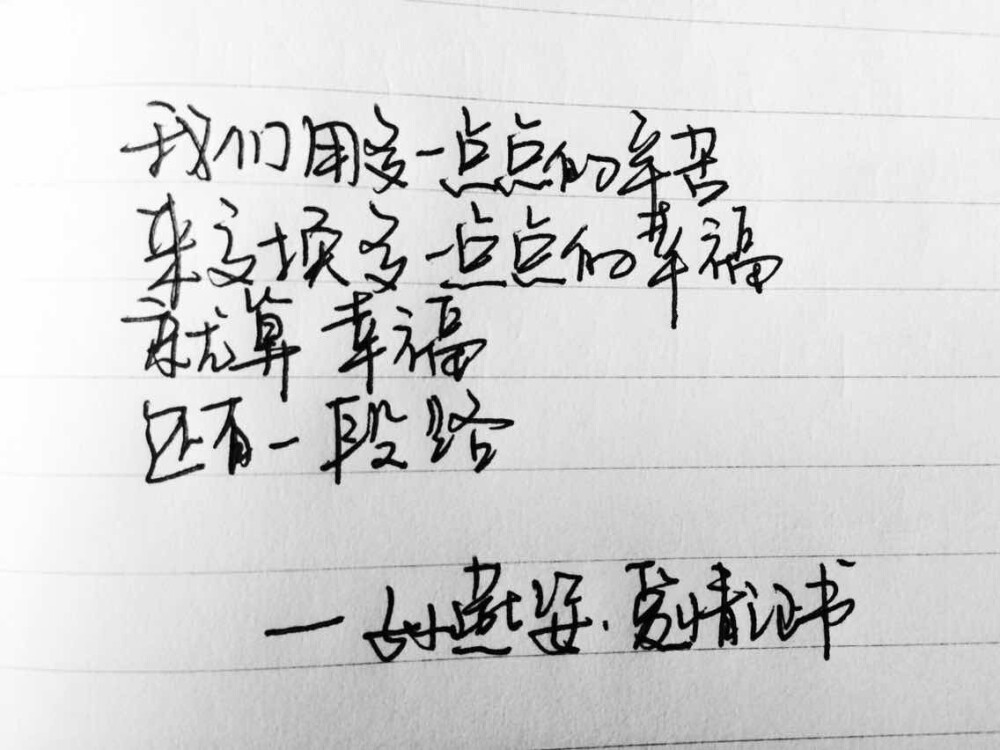 我们用多一点点的辛苦
来交换多一点点的幸福
就算幸福
还有一段路
—孙燕姿.爱情证书